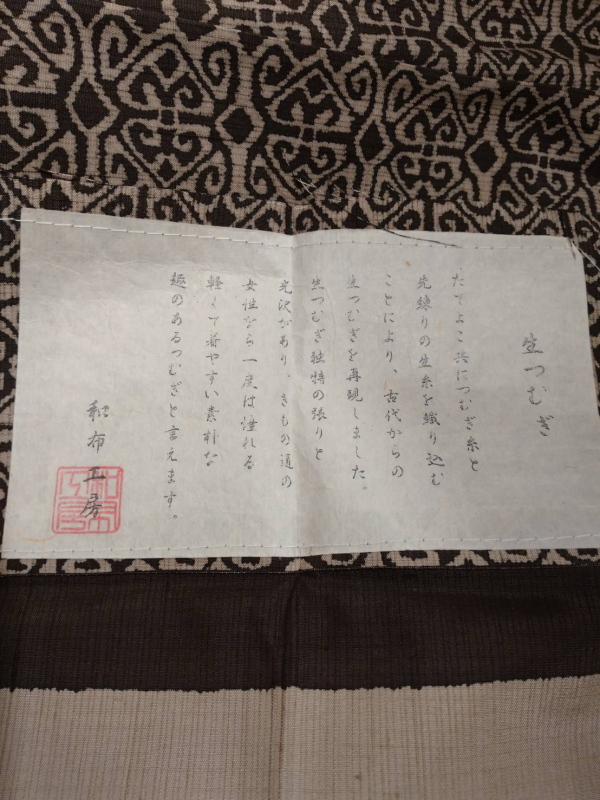 生つむぎ
たてよこ共につむぎ糸と
先練りの生糸を織り込む
ことにより、古代からの
生つむぎを再現しました。
生つむぎ独特の張りと
光沢があり、きもの通の
女性なら一度は憧れる
軽くて着やすい素朴な
趣のあるつむぎと言えます。
和布工房